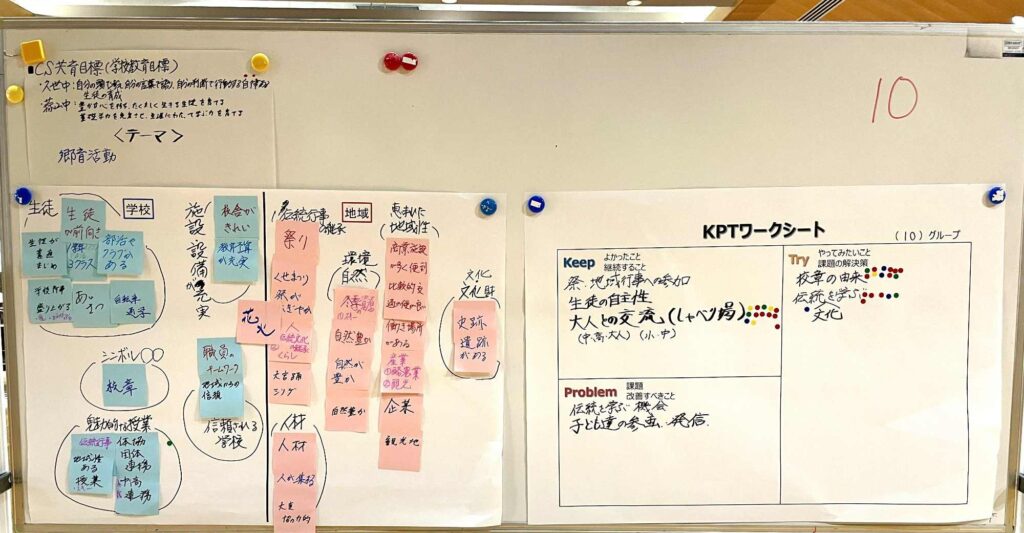 CS共育目標(学校教育目標)
・久世中:自分の頭で考え、自分の言葉で語り、自分の判断で行動する自律した
生徒の育成
・蒜山中:豊かな心を持ち、たくましく生きる生徒を育てる
基礎学力を充実させ、生涯にわたって学ぶ力を育てる
<テーマ>
郷育活動
10
生徒
学校
生徒
が前向き
生徒が
素直
まじめ
部活や
クラブが
ある
学校行事
盛り上がる
あい
さつ
自転車
通学
施設設備が充実
校舎が
きれい
教育予算
が充実
シンボル〇〇
校章
職員の
チームワーク
地域からの
信頼
信頼される
学校
魅力的な授業
伝統行事
地域性
ある
授業
体協
団体
連携
小中高
連携
伝統行事
継承
地域
祭り
くせまつり
祭が
にぎやか
花火
人
伝統文化
くらし
大宮踊
人材
人材
人が集まる
大人
協力的
環境
自然
自然豊か
自然が
豊か
自然豊か
恵まれた
地域性
商業施設
が多く便利
比較的交
通の便が良い
働き場所
がある
産業
①酪農業
②観光
企業
観光地
文化
文化財
史跡
遺跡
がある
KPTワークシート
(10)グループ
Keep よかったこと
継続すること
祭・地域行事への参加
生徒の自主性
大人との交流(しゃべり場)
(中・高・大人)(小・中)
Problem 課題
改善すべきこと
伝統を学ぶ機会
子ども達の参画、発信
Try やってみたいこと
課題の解決策
校章の由来
伝統を学ぶ
文化